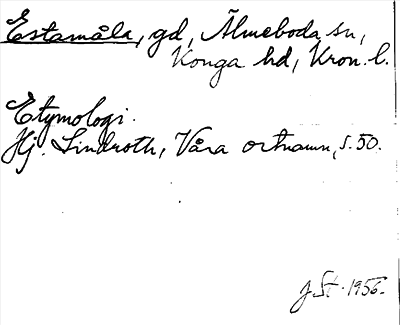 Estamåla, gd, Älmeboda sn,
Konga hd, Kron. l.
Etymologi.
Hj. Lindroth, Våra ortnamn, s. 50.
J. St. 1956.